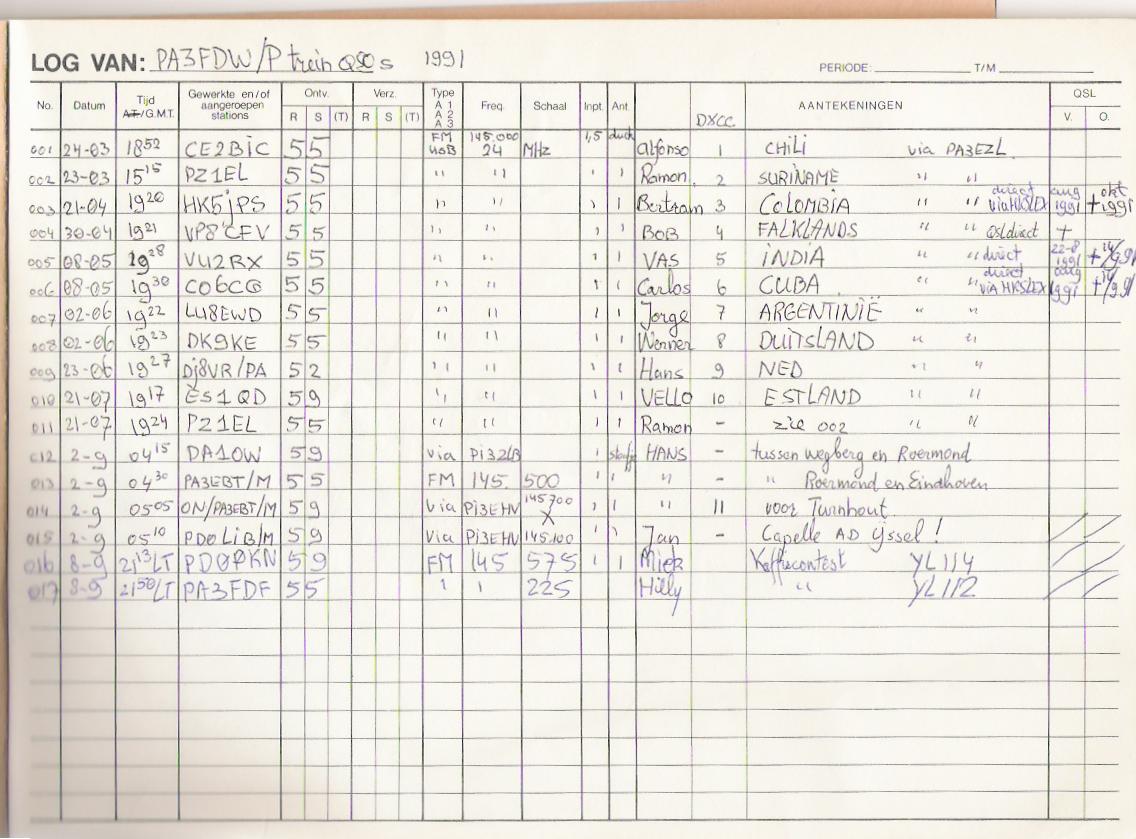 LOG VAN: PA3FDW/P trein QSO s 1991
PERIODE: T/M
No. Datum Tijd A.T./G.M.T. Gewerkte en/of aangeroepen stations Ontv. R S (T) Verz. R S (T) Type A 1 A 2 A 3 Freq. Schaal Inpt. Ant. DXCC AANTEKENINGEN QSL V. O.
001 24-03 18 52 CE2BiC 5 5 FM 145.000 24 MHz 1,5 Alfonso 1 CHiLi via PA3EZL
002 23-03 15 15 PZ1EL 5 5 " " ' ' Ramon 2 SURiNAME " "
003 21-04 19 20 HK5jPS 5 5 " " ' ' Bertram 3 COLOMBiA " " direct aug 1991 + okt 1991
004 30-04 19 21 VP8CFV 5 5 " " ' ' BOB 4 FALKLANDS " " QSLdirect +
005 08-05 19 28 VU2RX 5 5 " " ' ' VAS 5 iNDiA " " direct 22-8 1991 +
006 08-05 19 30 CO6CG 5 5 " " ' ' Carlos 6 CUBA " " direct 1991 +
007 02-06 19 22 LU8EWD 5 5 " " ' ' Jorge 7 ARGENTiNiË " "
008 02-06 19 23 DK9KE 5 5 " " ' ' Werner 8 DUiTSLAND " "
009 23-06 19 27 Dj8VR/PA 5 2 " " ' ' Hans 9 NED " "
010 21-07 19 17 ES1QD 5 9 " " ' ' VELLO 10 ESTLAND " "
011 21-07 19 24 PZ1EL 5 5 " " ' ' Ramon - zie 002 " "
012 2-9 04 15 DA1OW 5 9 via ' HANS - tussen Wegberg en Roermond
013 2-9 04 30 PA3EBT/M 5 5 FM 145. 500 ' ' " - " Roermond en Eindhoven
014 2-9 05 05 ON/PA3EBT/M 5 9 via Pi3EHV 145700 X ' ' " 11 voor Turnhout
015 2-9 05 10 PD0LiB/M 5 9 Via Pi3EHV 145.100 ' ' Jan - Capelle AD ijssel !
016 8-9 21 13 LT PDØPKN 5 9 FM 145 575 ' ' Miek Koffiecontest YL114
017 8-9 21 50 LT PA3FDF 5 5 ' ' 225 Hilly " YL112